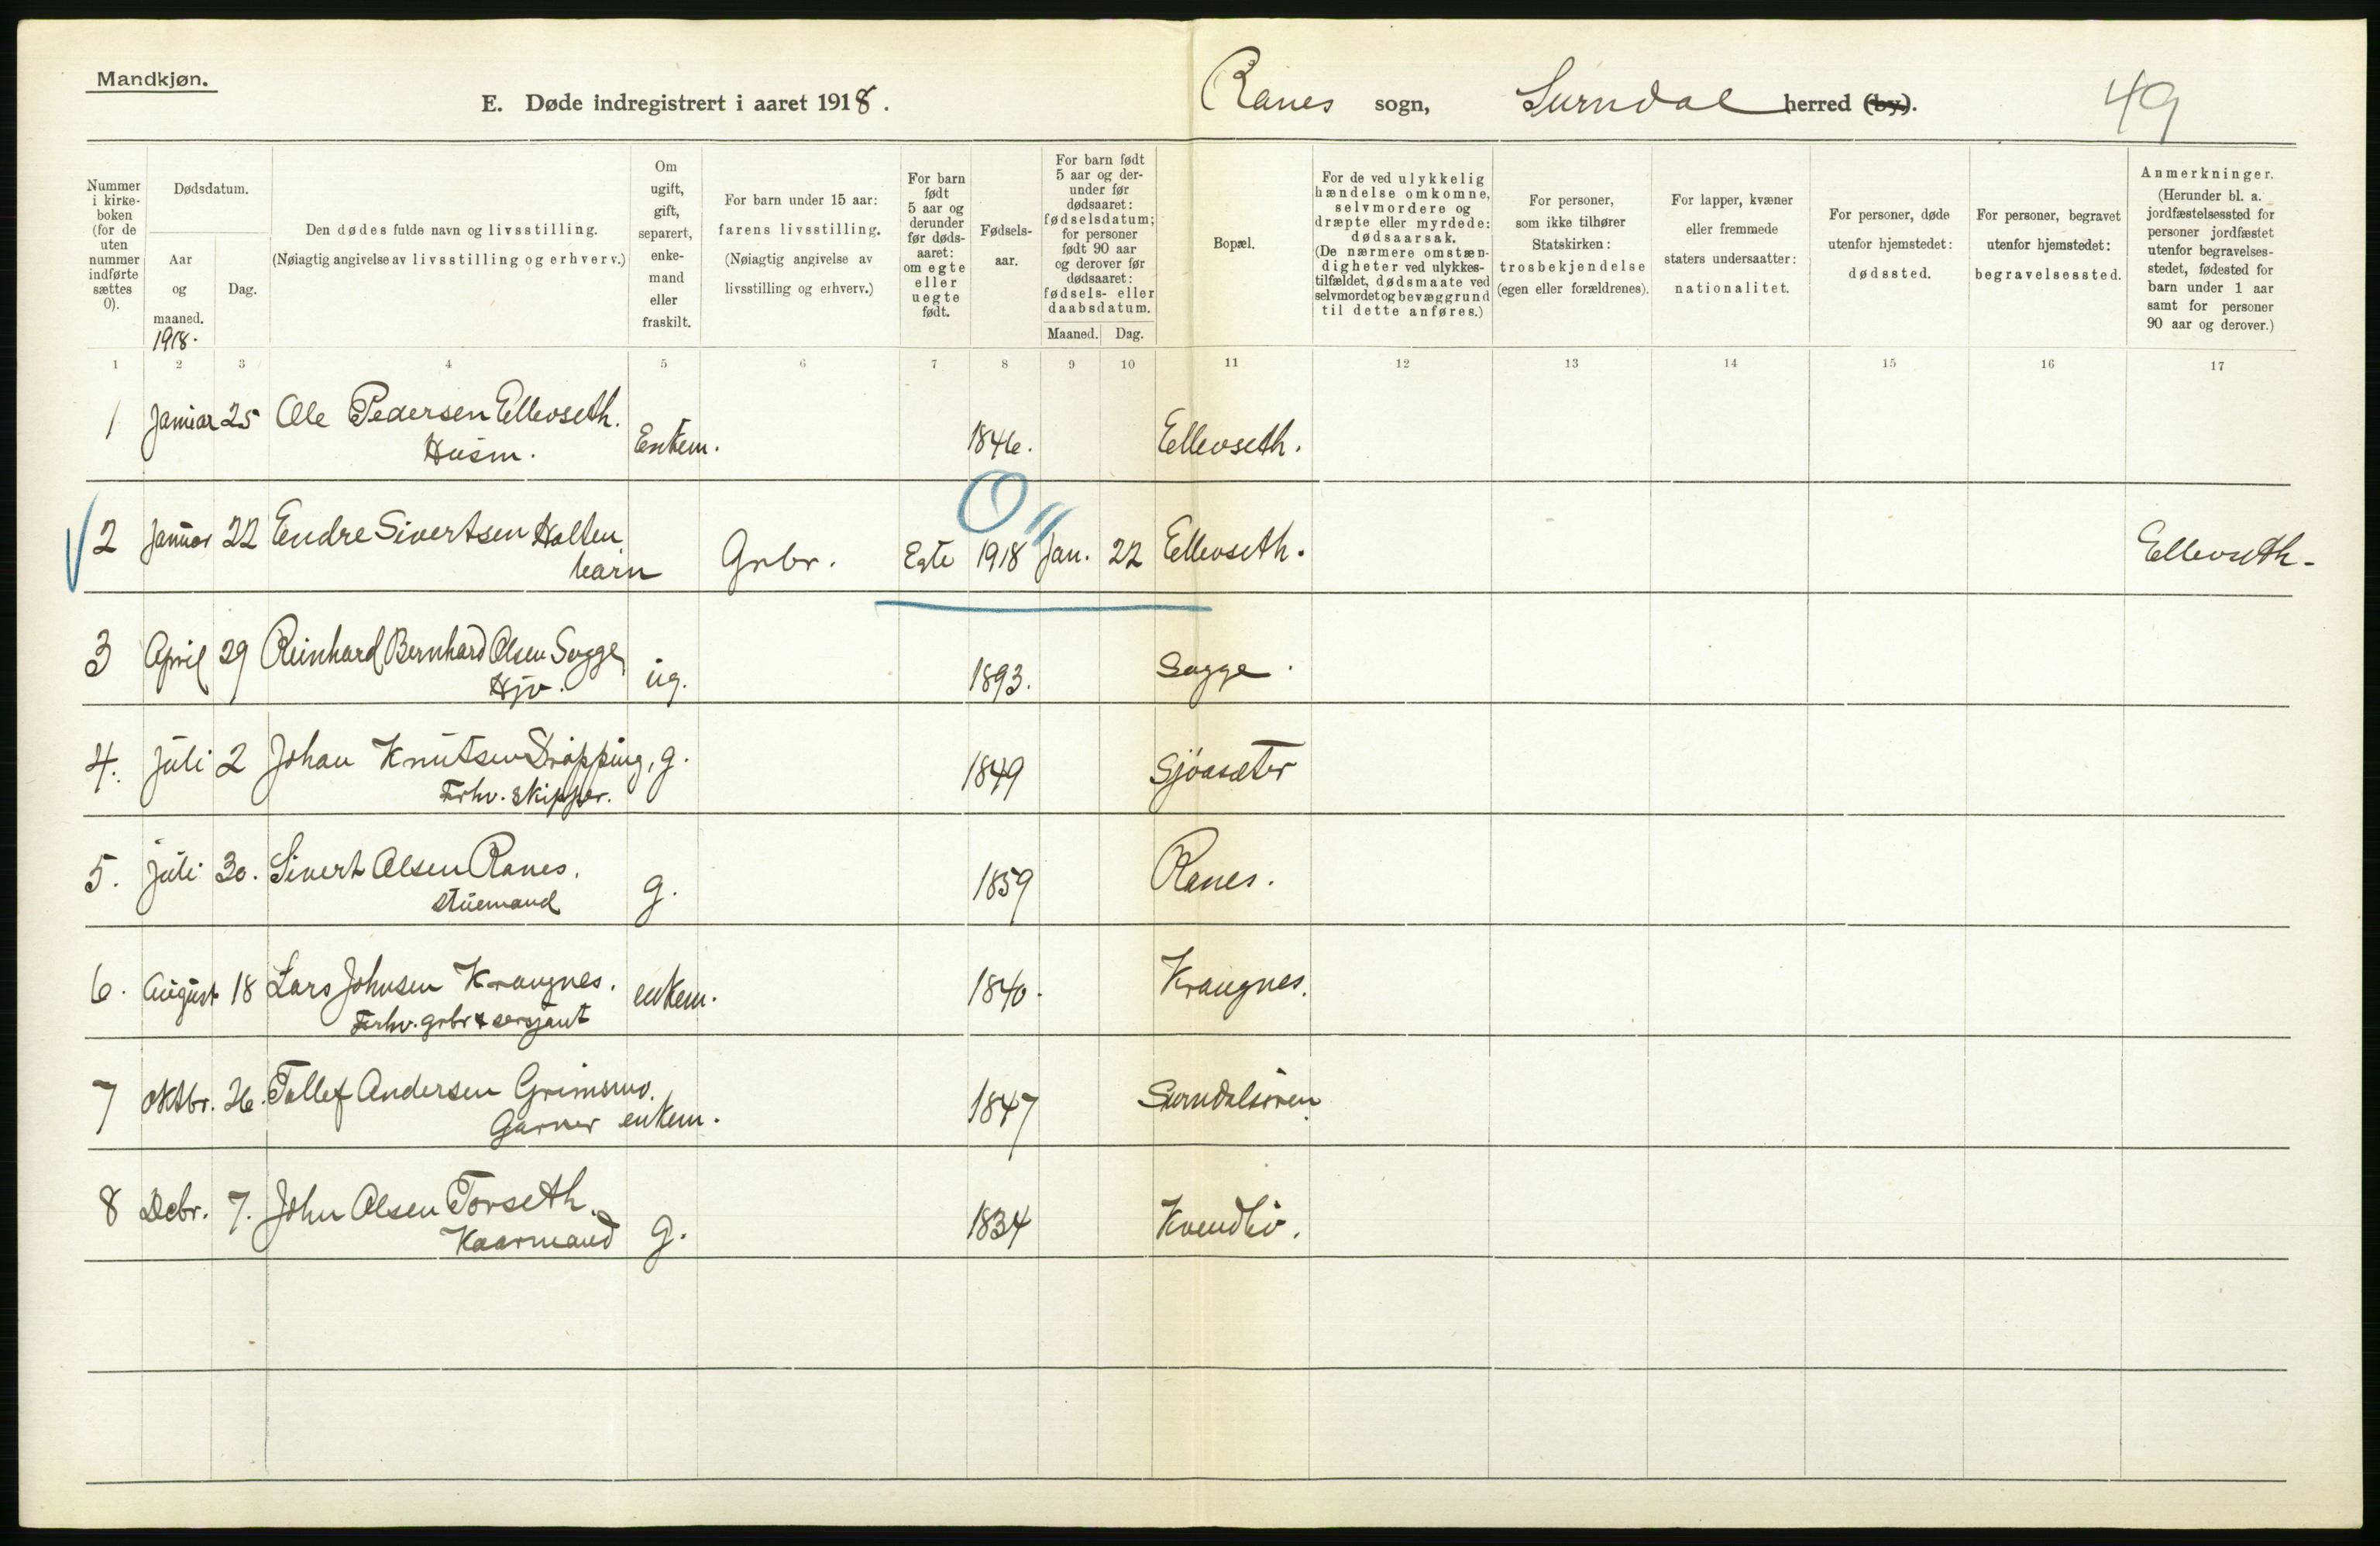 Mandkjøn.
E. Døde indregistrert i aaret 1918.
Ranes sogn, Surndal herred (by).
49
Nummer i kirke-boken (for de uten nummer indførte sættes 0).
Dødsdatum.
Aar og maaned.
1918.
Dag.
Den dødes fulde navn og livsstilling.
(Nøiagtig angivelse av livsstilling og erhverv.)
Om ugift, gift, separert, enke-mand eller fraskilt.
For barn under 15 aar:
farens livsstilling.
(Nøiagtig angivelse av livsstilling og erhverv.)
For barn født 5 aar og derunder før døds-aaret: om egte eller uegte født.
Fødsels-aar.
For barn født 5 aar og der-under før dødsaaret: fødselsdatum; for personer født 90 aar og derover før dødsaaret: fødsels- eller daabsdatum.
Maaned. Dag.
Bopæl.
For de ved ulykkelig hændelse omkomne, selvmordere og dræpte eller myrdede: dødsaarsak. (De nærmere omstæn-digheter ved ulykkes-tilfældet, dødsmaate ved selvmordet og bevæggrund til dette anføres.)
For personer, som ikke tilhører Statskirken: trosbekjendelse (egen eller forældrenes).
For lapper, kvæner eller fremmede staters undersaatter: nationalitet.
For personer, døde utenfor hjemstedet: dødssted.
For personer, begravet utenfor hjemstedet: begravelsessted.
Anmerkninger.
(Herunder bl. a. jordfæstelsessted for personer jordfæstet utenfor begravelses-stedet, fødested for barn under 1 aar samt for personer 90 aar og derover.)
1 2 3 4 5 6 7 8 9 10 11 12 13 14 15 16 17
1 Januar 25 Ole Pedersen Ellevseth. Husm. Enkem. 1846. Ellevseth.
2 Januar 22 Endre Sivertsen Holten barn Grbr. Egte 1918 Jan. 22 Ellevseth. Ellevseth.
3 April 29 Reinhard Bernhard Olsen Sogge Hjv. ug. 1893. Sogge.
4. Juli 2 Johan Knutsen Drøpping, Frhv. skipper. g. 1849 Sjöasæter
5. Juli 30. Sivert Olsen Ranes. stuemand g. 1859 Ranes.
6. August 18 Lars Johnsen Krangnes. Frhv. grbr & sersjant enkem. 1840. Krangnes.
7 Oktbr. 26. Tollef Andersen Grimsmo. Garver enkem. 1847 Surndalsøren
8 Debr. 7. John Olsen Torseth. Kaarmand g. 1834 Kvendbø.